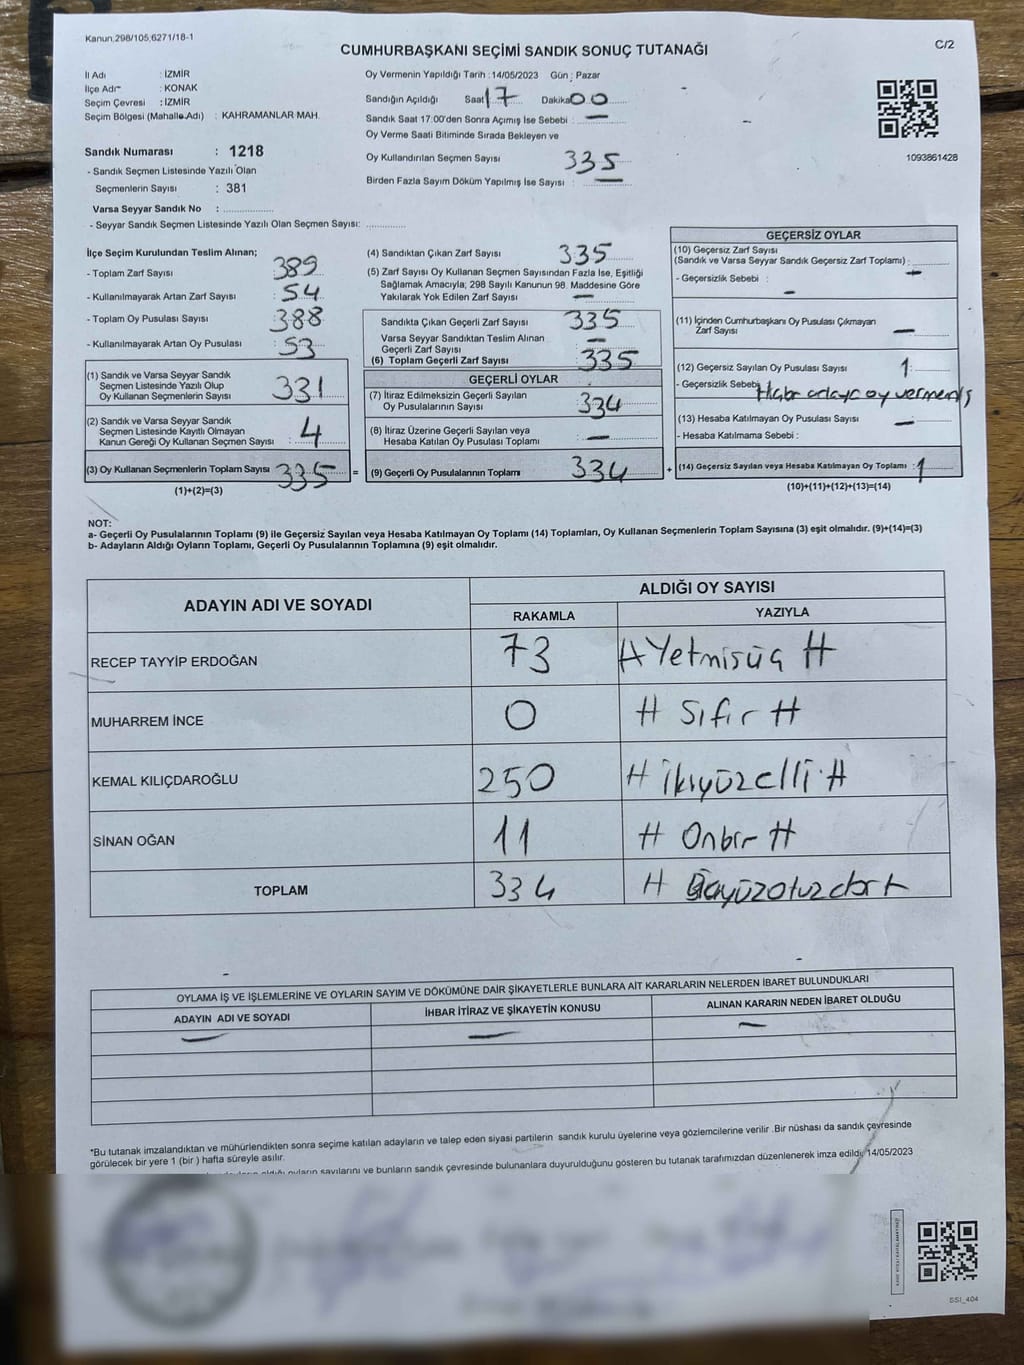 Kanun,298/105,6271/18-1
C/2
CUMHURBAŞKANI SEÇİMİ SANDIK SONUÇ TUTANAĞI
İl Adı : İZMİR
İlçe Adı : KONAK
Seçim Çevresi : İZMİR
Seçim Bölgesi (Mahalle Adı) : KAHRAMANLAR MAH.
Sandık Numarası : 1218
- Sandık Seçmen Listesinde Yazılı Olan
Seçmenlerin Sayısı : 381
Varsa Seyyar Sandık No : ................
- Seyyar Sandık Seçmen Listesinde Yazılı Olan Seçmen Sayısı: ..............
Oy Vermenin Yapıldığı Tarih : 14/05/2023 Gün : Pazar
Sandığın Açıldığı Saat 17 Dakika 00
Sandık Saat 17:00'den Sonra Açımış İse Sebebi : —
Oy Verme Saati Bitiminde Sırada Bekleyen ve
Oy Kullandırılan Seçmen Sayısı 335
Birden Fazla Sayım Döküm Yapılmış İse Sayısı : —
1093861428
İlçe Seçim Kurulundan Teslim Alınan;
- Toplam Zarf Sayısı 389
- Kullanılmayarak Artan Zarf Sayısı : 54
- Toplam Oy Pusulası Sayısı : 388
- Kullanılmayarak Artan Oy Pusulası : 53
(1) Sandık ve Varsa Seyyar Sandık
Seçmen Listesinde Yazılı Olup
Oy Kullanan Seçmenlerin Sayısı : 331
(2) Sandık ve Varsa Seyyar Sandık
Seçmen Listesinde Kayıtlı Olmayan
Kanun Gereği Oy Kullanan Seçmen Sayısı : 4
(3) Oy Kullanan Seçmenlerin Toplam Sayısı : 335 =
(1)+(2)=(3)
(4) Sandıktan Çıkan Zarf Sayısı 335
(5) Zarf Sayısı Oy Kullanan Seçmen Sayısından Fazla İse, Eşitliği
Sağlamak Amacıyla, 298 Sayılı Kanunun 98. Maddesine Göre
Yakılarak Yok Edilen Zarf Sayısı : —
Sandıkta Çıkan Geçerli Zarf Sayısı : 335
Varsa Seyyar Sandıktan Teslim Alınan
Geçerli Zarf Sayısı : —
(6) Toplam Geçerli Zarf Sayısı : 335
GEÇERLİ OYLAR
(7) İtiraz Edilmeksizin Geçerli Sayılan
Oy Pusulalarının Sayısı : 334
(8) İtiraz Üzerine Geçerli Sayılan veya
Hesaba Katılan Oy Pusulası Toplamı : —
(9) Geçerli Oy Pusulalarının Toplamı : 334 +
GEÇERSİZ OYLAR
(10) Geçersiz Zarf Sayısı
(Sandık ve Varsa Seyyar Sandık Geçersiz Zarf Toplamı) : —
- Geçersizlik Sebebi : —
(11) İçinden Cumhurbaşkanı Oy Pusulası Çıkmayan
Zarf Sayısı : —
(12) Geçersiz Sayılan Oy Pusulası Sayısı : 1
- Geçersizlik Sebebi adaya oy vermemiş
(13) Hesaba Katılmayan Oy Pusulası Sayısı : —
- Hesaba Katılmama Sebebi :
(14) Geçersiz Sayılan veya Hesaba Katılmayan Oy Toplamı : 1
(10)+(11)+(12)+(13)=(14)
NOT:
a- Geçerli Oy Pusulalarının Toplamı (9) ile Geçersiz Sayılan veya Hesaba Katılmayan Oy Toplamı (14) Toplamları, Oy Kullanan Seçmenlerin Toplam Sayısına (3) eşit olmalıdır. (9)+(14)=(3)
b- Adayların Aldığı Oyların Toplamı, Geçerli Oy Pusulalarının Toplamına (9) eşit olmalıdır.
ADAYIN ADI VE SOYADI
ALDIĞI OY SAYISI
RAKAMLA YAZIYLA
RECEP TAYYİP ERDOĞAN 73 # Yetmişüç #
MUHARREM İNCE 0 # Sıfır #
KEMAL KILIÇDAROĞLU 250 # İkiyüzelli #
SİNAN OĞAN 11 # Onbir #
TOPLAM 334 # Üçyüzotuzdört
OYLAMA İŞ VE İŞLEMLERİNE VE OYLARIN SAYIM VE DÖKÜMÜNE DAİR ŞİKAYETLERLE BUNLARA AİT KARARLARIN NELERDEN İBARET BULUNDUKLARI
ADAYIN ADI VE SOYADI İHBAR İTİRAZ VE ŞİKAYETİN KONUSU ALINAN KARARIN NEDEN İBARET OLDUĞU
— — —
*Bu tutanak imzalandıktan ve mühürlendikten sonra seçime katılan adayların ve talep eden siyasi partilerin sandık kurulu üyelerine veya gözlemcilerine verilir .Bir nüshası da sandık çevresinde
görülecek bir yere 1 (bir ) hafta süreyle asılır.
aldığı oyların sayılarını ve bunların sandık çevresinde bulunanlara duyurulduğunu gösteren bu tutanak tarafımızdan düzenlenerek imza edildi. 14/05/2023
SSI_404